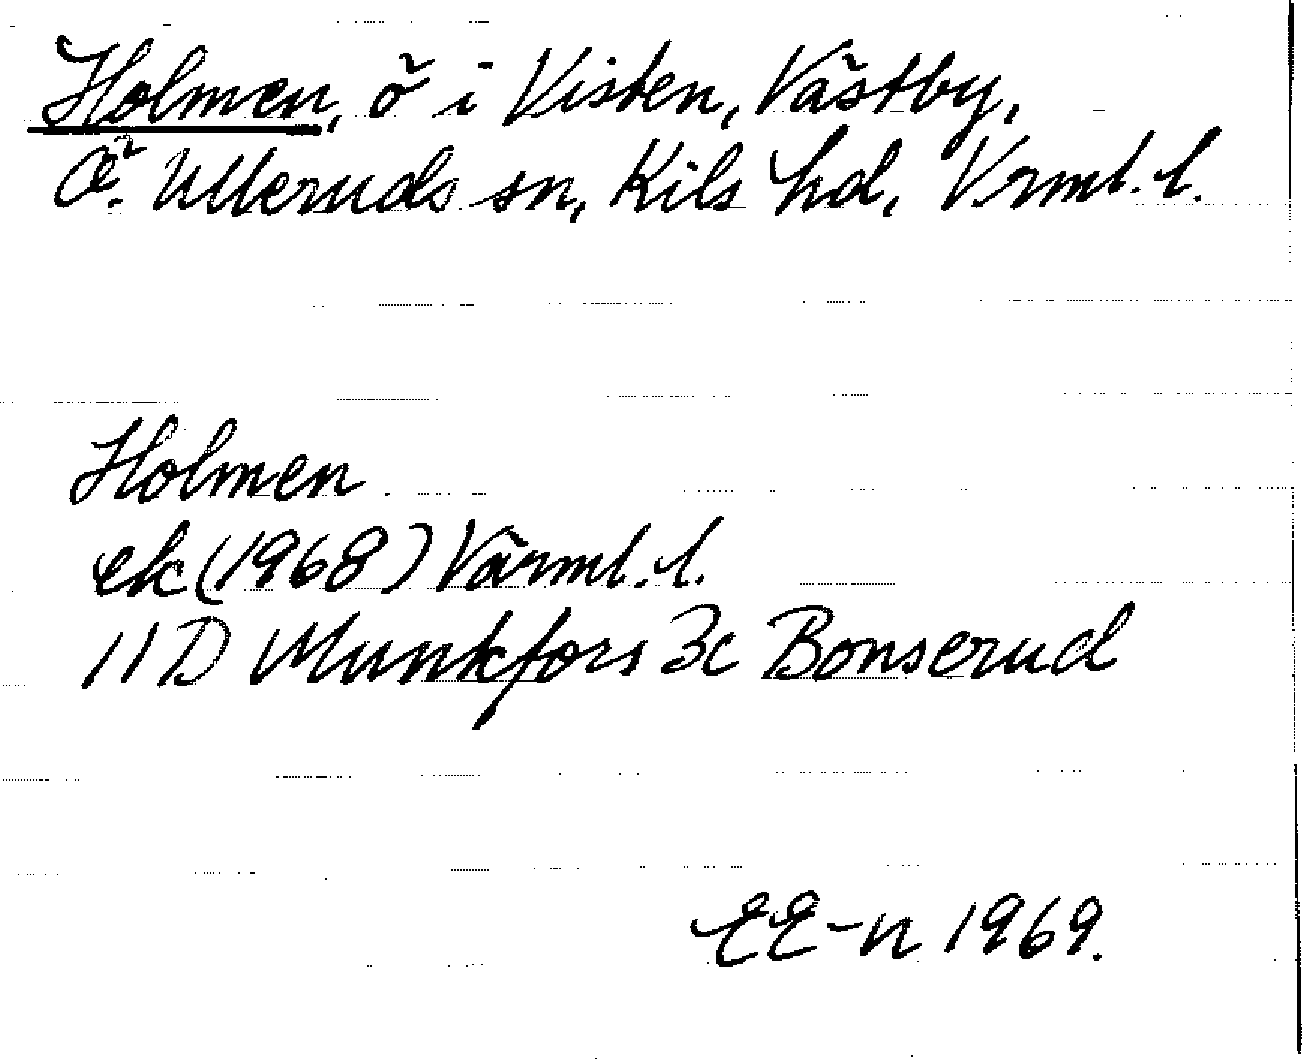 Holmen, ö i Visten, Västby,
Ö. Ulleruds sn, Kils hd, Vrml. l.
Holmen
ek (1968) Värml. l.
11 D Munkfors 3c Bonserud
EE-n 1969.